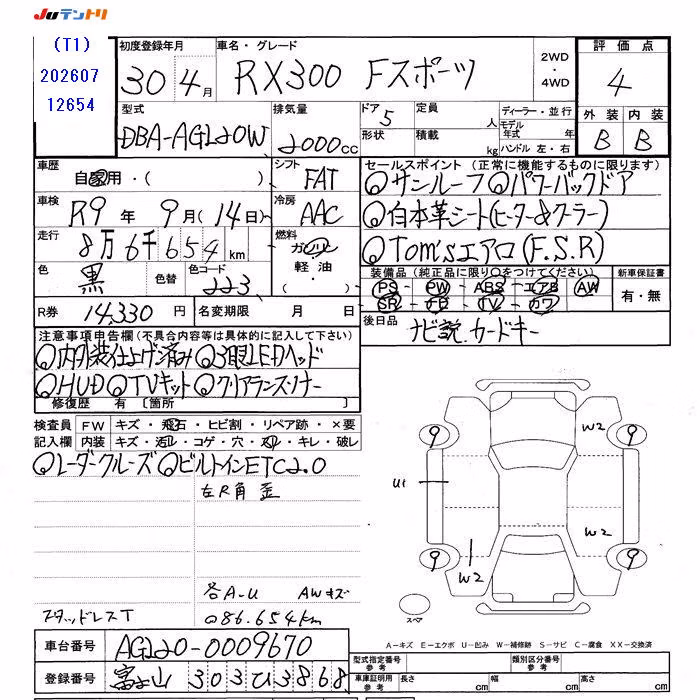 Juテントリ
(T1)
202607
12654
初度登録年月
30年4月
車名・グレード
RX300 Fスポーツ
2WD
・
4WD
評価点
4
外装 内装
B B
型式
DBA-AGL20W
排気量
2000cc
ドア 5
定員 人
形状
積載 kg
ディーラー・並行
モデル年式 年式
ハンドル 左・右
車歴
自家用・( )
シフト
FAT
セールスポイント (正常に機能するものに限ります)
◎サンルーフ◎パワーバックドア
車検
R9年 9月(14日)
冷房
AAC
◎白本革シート(ヒーター&クーラー)
走行
8万6千654km
燃料
ガソリン
軽油・
( )
◎Tom'sエアロ(F.S.R)
色
黒
色替
色コード
223
装備品(純正品に限り○をつけてください)
PS・PW・ABS・エアB・AW
SR・ナビ・TV・カワ
新車保証書
有・無
R券 14,330円
名変期限 月 日
後日品
ナビ説.カードキー
注意事項申告欄(不具合内容等は具体的に記入して下さい)
◎内外装仕上げ済み◎3眼LEDヘッド
◎HUD◎TVキット◎クリアランスソナー
修復歴 有 〔箇所 〕
検査員 FW キズ・飛石・ヒビ割・リペア跡・×要
記入欄 内装 キズ・汚れ・コゲ・穴・スレ・キレ・破レ
◎レーダークルーズ◎ビルトインETC2.0
左R角 歪
各A-U AWキズ
スタッドレスT
086.654km
9
9
9
9
W2
U1
W2
W2
スペア
A-キズ E-エクボ U-凹み W-補修跡 S-サビ C-腐食 XX-交換済
車台番号 AGL20-0009670
登録番号 富山 303 ひ 3868
型式指定番号 参考
類別区分番号 参考
車庫証明用 参考
長さ cm 幅 cm 高さ cm